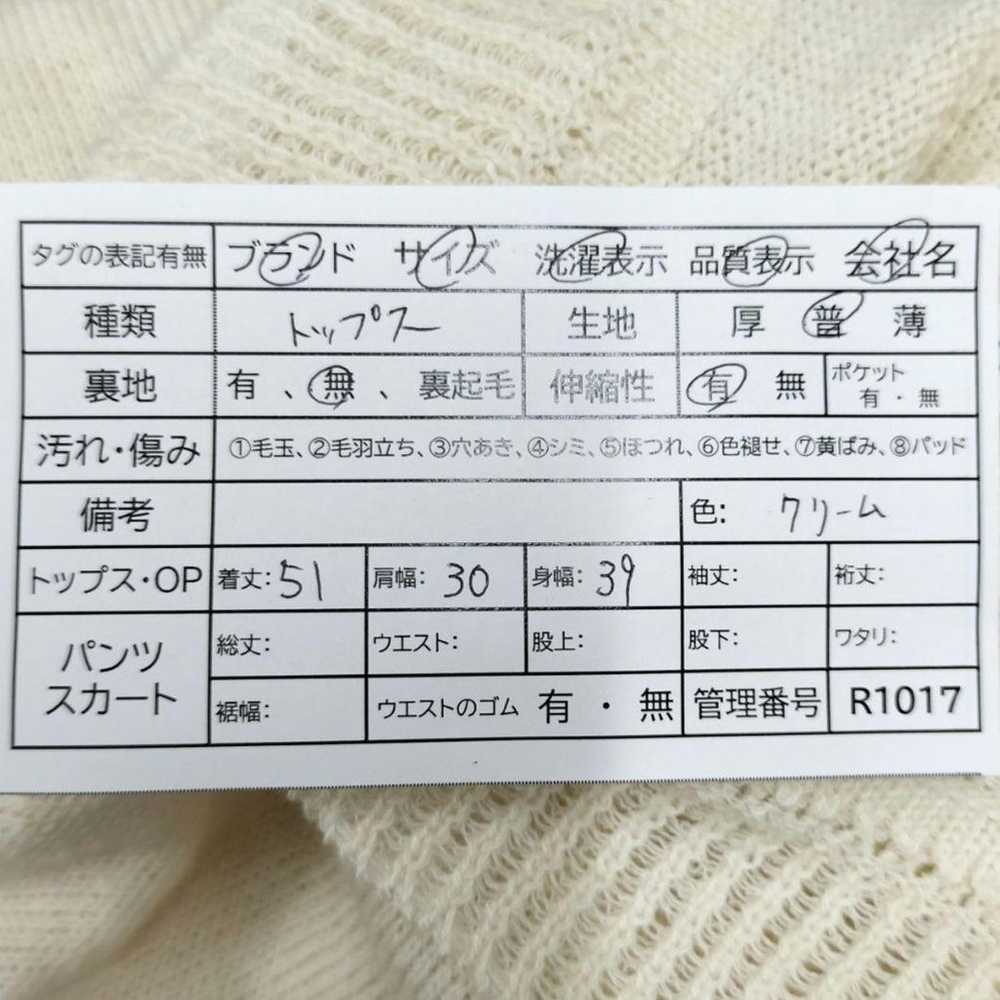 タグの表記有無 ブランド サイズ 洗濯表示 品質表示 会社名
種類 トップス 生地 厚 普 薄
裏地 有 、無 、裏起毛 伸縮性 有 無 ポケット 有・無
汚れ・傷み ①毛玉、②毛羽立ち、③穴あき、④シミ、⑤ほつれ、⑥色褪せ、⑦黄ばみ、⑧パッド
備考 色: クリーム
トップス・OP 着丈:51 肩幅:30 身幅:39 袖丈: 裄丈:
パンツ スカート 総丈: ウエスト: 股上: 股下: ワタリ:
裾幅: ウエストのゴム 有・無 管理番号 R1017